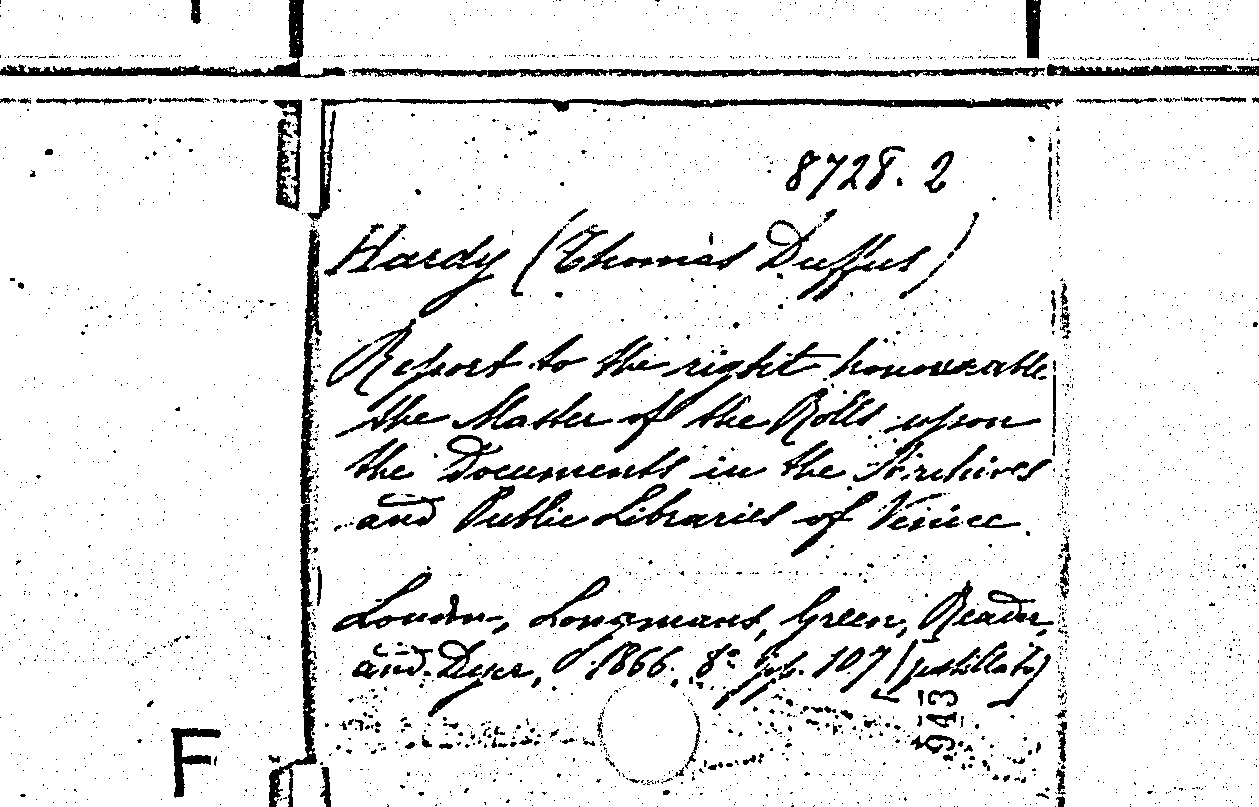 8728. 2
Hardy (Thomas Duffus)
Report to the right honourable
the Master of the Rolls upon
the Documents in the Archives
and Public Libraries of Venice.
London, Longmans, Green, Reader,
and Dyer, 1866. 8° pp. 107 (postillato)
943
F